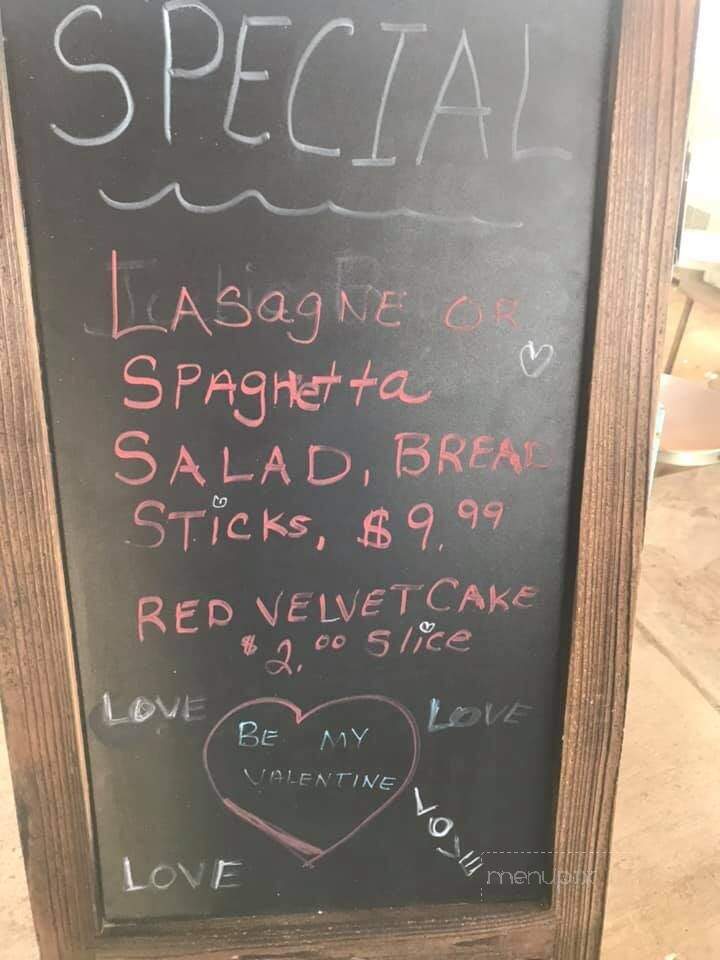 SPECIAL
LASagNE OR
SPAgHetta
SALAD, BREAD
STicKs, $9.99
RED VELVET CAKE
$2.00 Slice
LOVE
LOVE
BE MY
VALENTINE
LOVE
LOVE
menupix